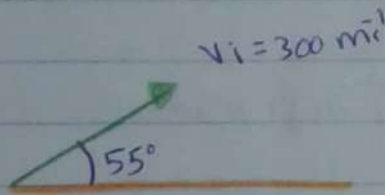 vi = 300 ms⁻¹
55°